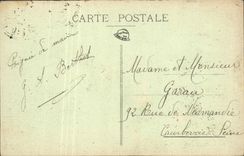 CARTE POSTALE
Poignée de main
G. A. Berthet
Madame et Monsieur
Garau
92 Rue de Normandie
Courbevoie Seine